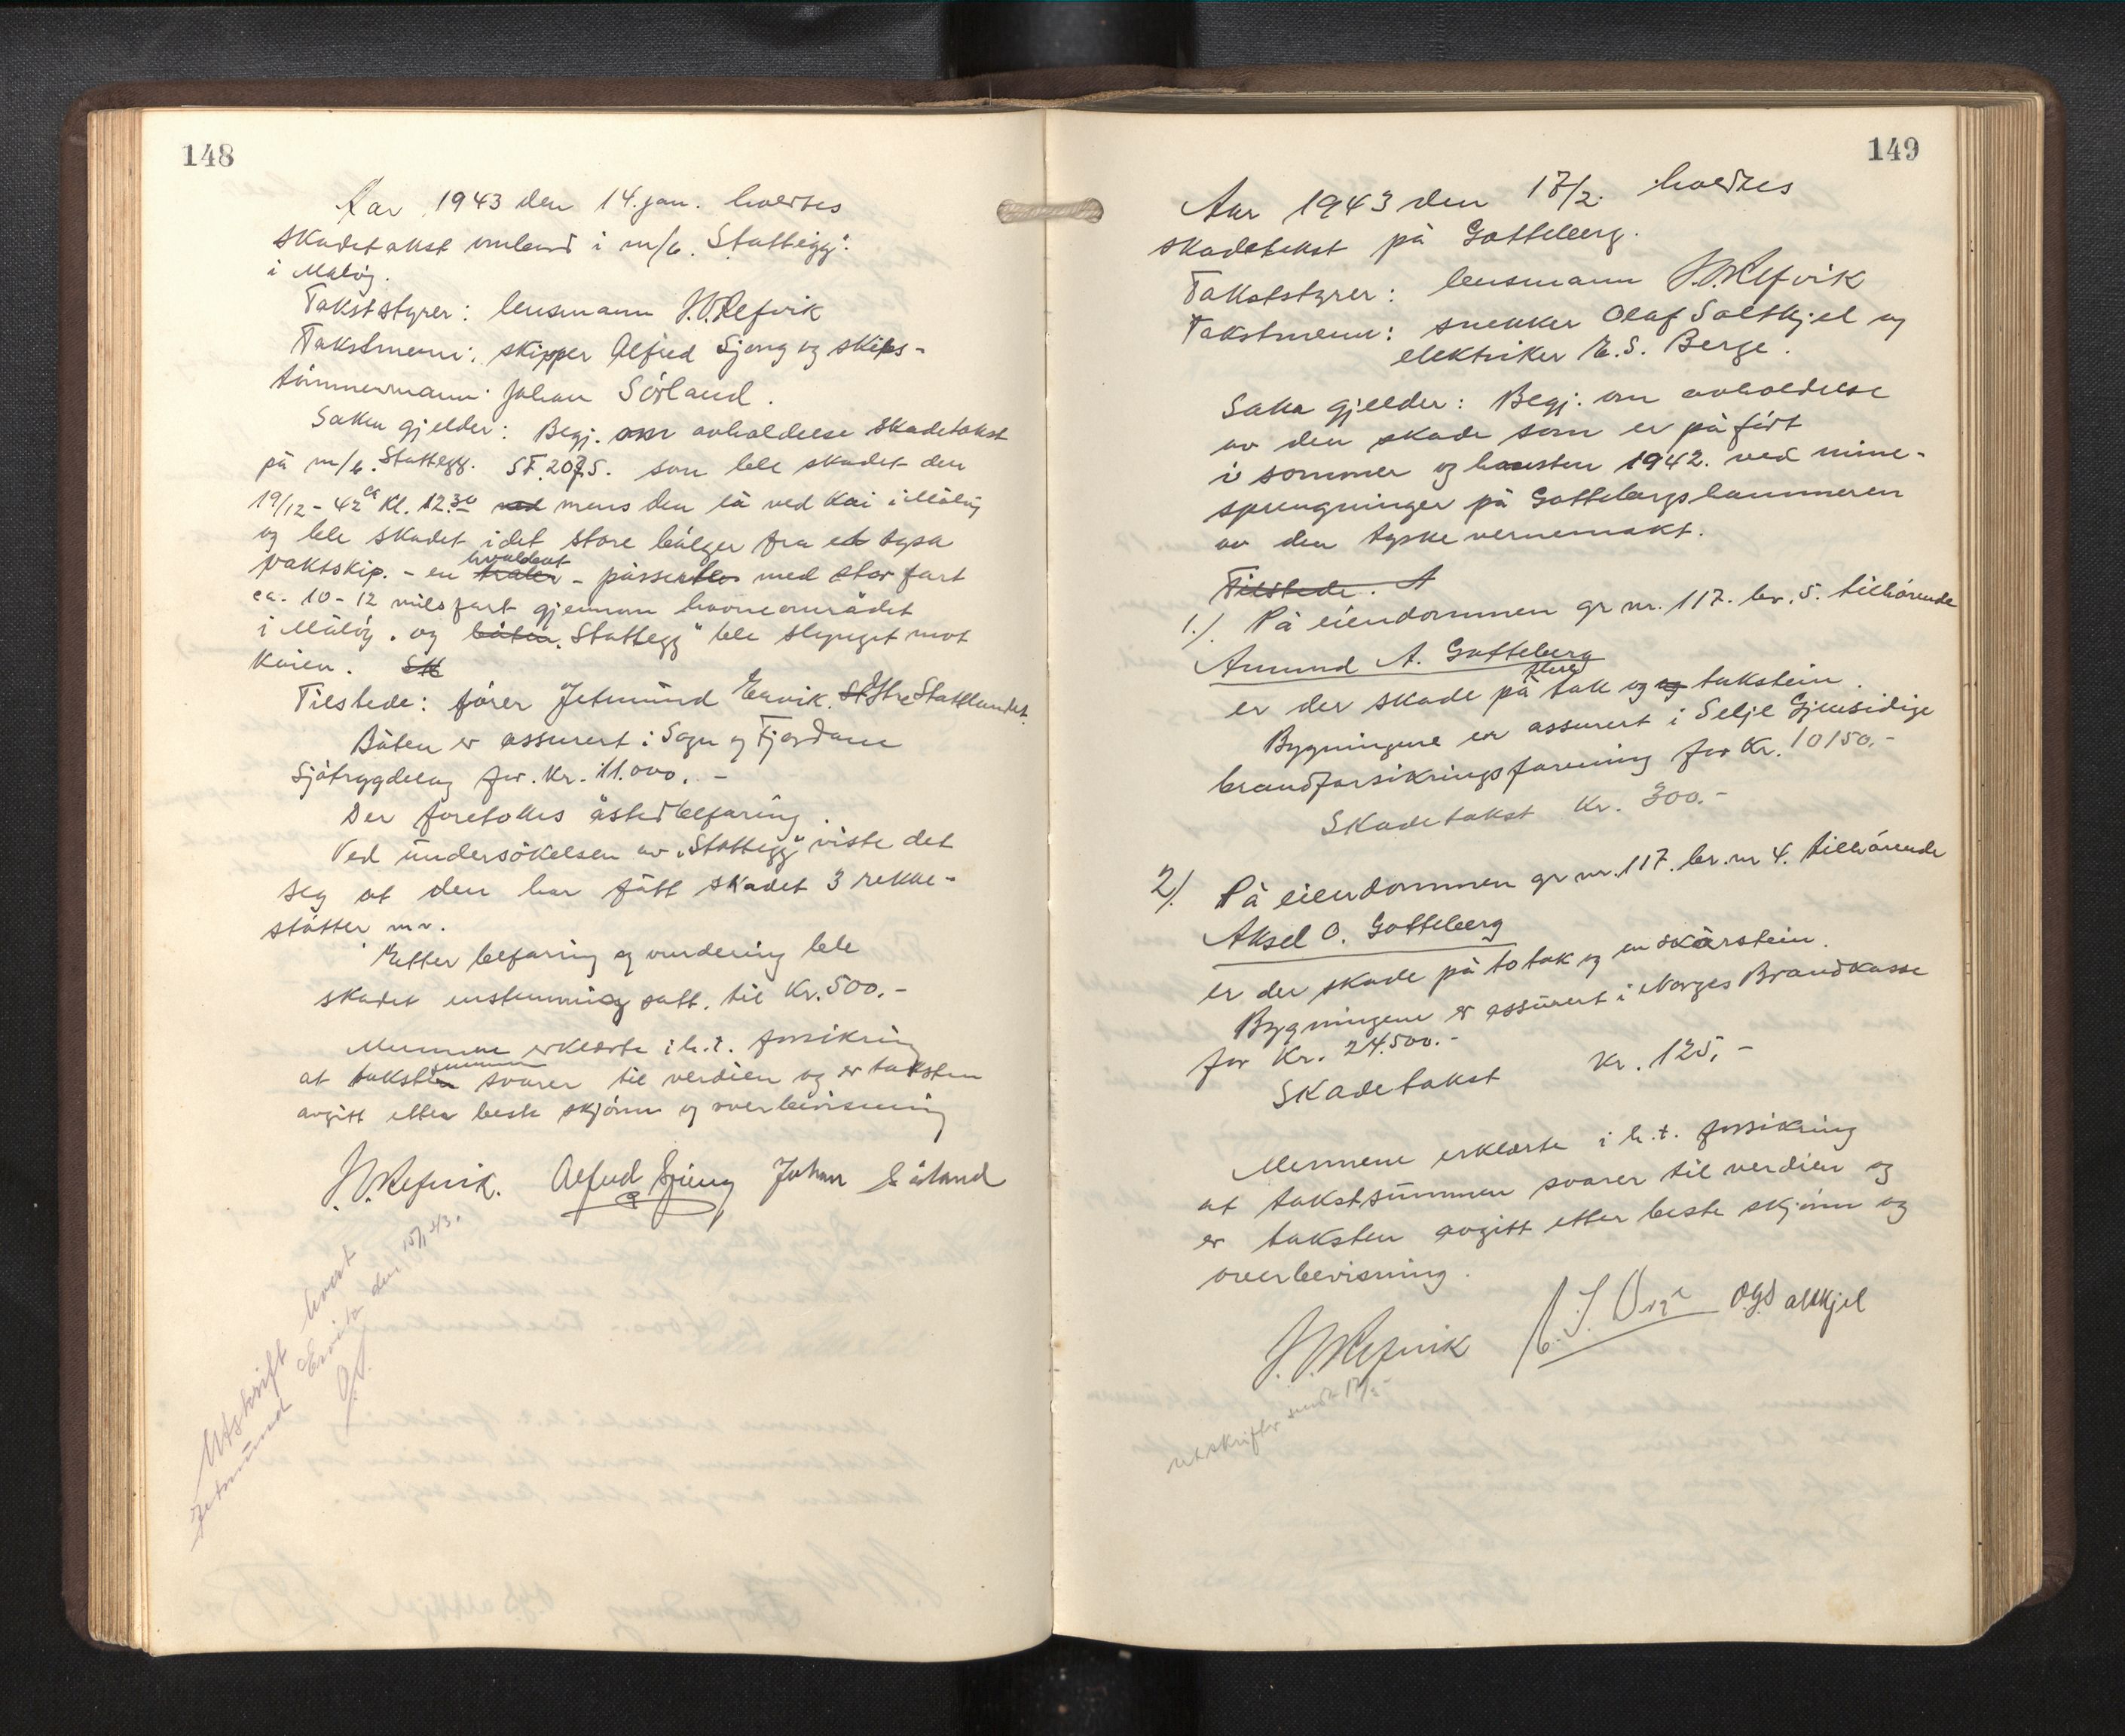 148
Aar 1943 den 14. jan. holdtes
skadetakst ombord i m/b. "Stattegg"
i Måløy.
Takststyrer: lensmann J. O. Refvik
Takstmenn: skipper Alfred Sjong og skips-
tömmermann Johan Sörland.
Saken gjelder: Begj. om avholdelse skadetakst
på m/b. Stattegg. SF. 207.S. som ble skadet den
19/12-42 ca Kl. 12.30 ved mens den lå ved kai i Måløy
og ble skadet idet store bölger fra et tysk
vaktskip. - en tråler hvalbåt - passerte med stor fart
ca. 10-12 mils fart gjennom havneområdet
i Måløy. og båten "Stattegg" ble slynget mot
kaien. Sk
Tilstede: förer Jetmund Ervik. St Ytre Stattlandet.
Båten er assurert i Sogn og Fjordane
Sjötrygdelag for Kr. 11.000.-
Der foretokes åstedbefaring.
Ved undersökelsen av "Stattegg" viste det
seg at den har fått skadet 3 rekke-
stötter m.v.
Etter befaring og vurdering ble
skaden enstemmig satt til Kr. 500.-
Mennene erklærte i h.t. forsikring
at taksten summen svarer til verdien og er taksten
avgitt etter beste skjönn og overbevisning
J. O. Refvik. Alfred Sjong Johan Sörland
Utskrift hvert
Jetmund Ervik den 15/1-43.
149
Aar 1943 den 17/2. holdtes
skadetakst på Gotteberg.
Takststyrer: lensmann J. O. Refvik
Takstmenn: snekker Olaf Saltkjel og
elektriker E. S. Berge.
Saka gjelder: Begj. om avholdelse
av den skade som er påfört
i sommer og hausten 1942. ved mine-
sprengninger på Gottebergshammeren
av den tyske vernemakt.
Tilstede. A
1.) På eiendommen gr nr. 117. br. 5. tilhörende
Amund A. Gotteberg
er der skade på flere tak og og takstein.
Bygningene er assurert i Selje Gjensidige
brandforsikringsforening for Kr. 10150.-
Skadetakst Kr. 300.-
2). På eiendommen gr nr. 117. br. nr 4. tilhörende
Aksel O. Gotteberg
er der skade på to tak og en skorstein.
Bygningene er assurert i Norges Brandkasse
for Kr. 24.500.-
Skadetakst Kr. 125,-
Mennene erklærte i h.t. forsikring
at takstsummen svarer til verdien og
er taksten avgitt etter beste skjönn og
overbevisning.
J. O. Refvik E. S. Berge O. G. Saltkjel
utskrifter sendt 17/2-